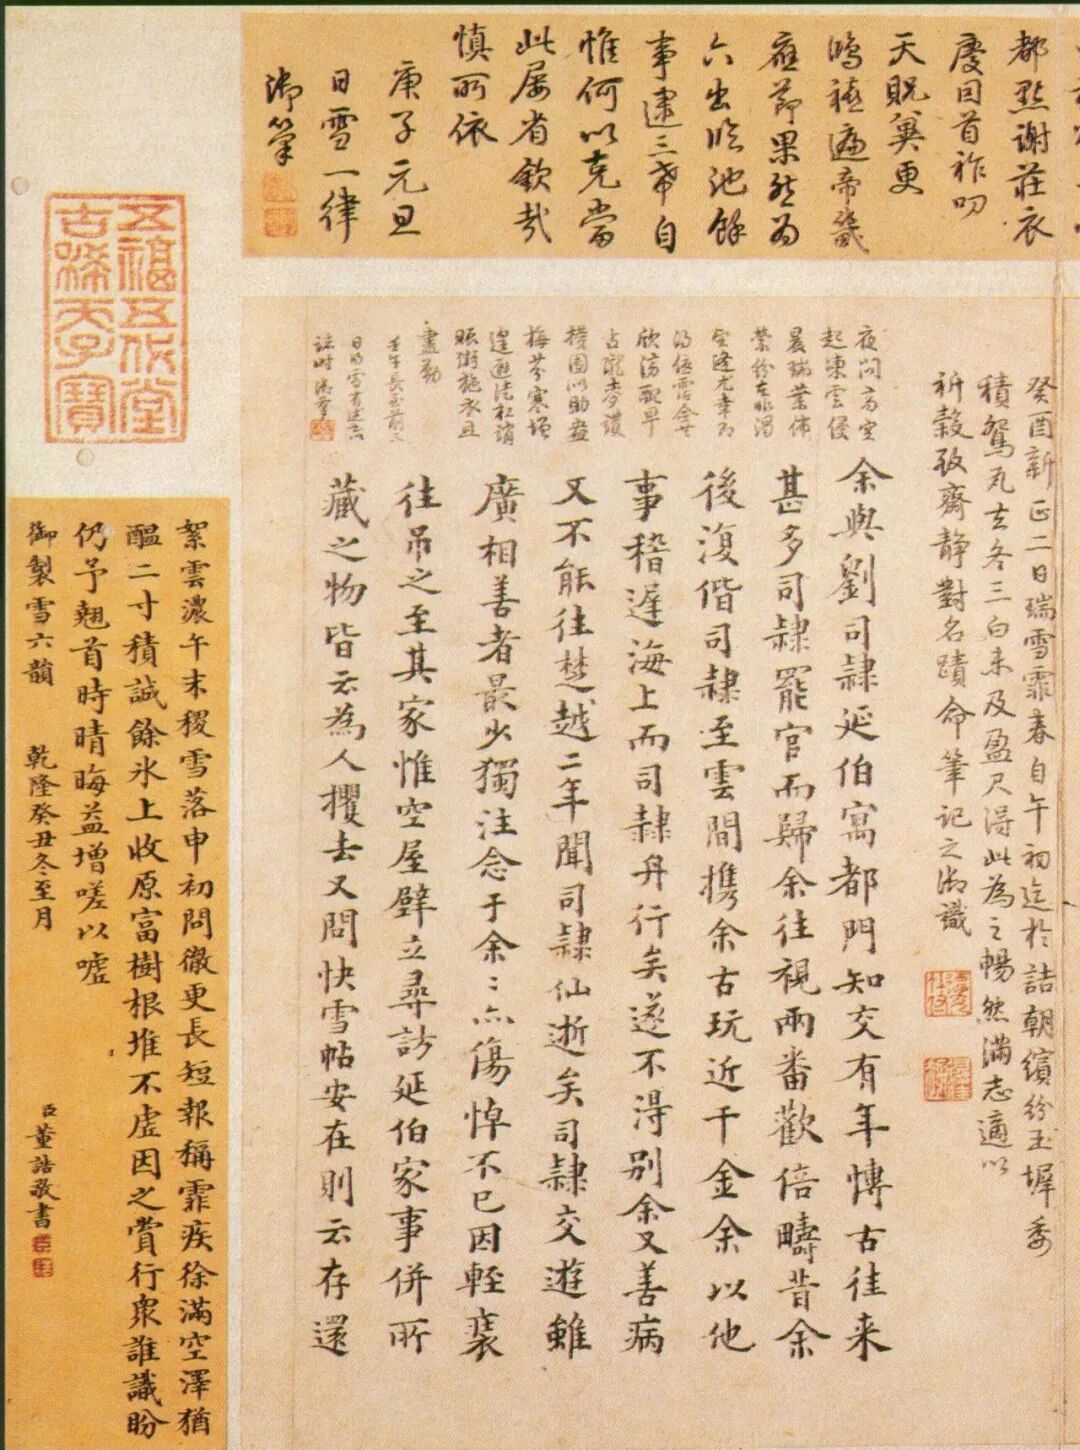 都點謝莊衣
慶因首祚叨
天貺冀更
鴻禧遍帝畿
應節果然為
六出臨池餘
事逮三希自
惟何以克當
此屢省欽哉
慎所依
庚子元旦
日雪一律
御筆
癸酉新正二日瑞雪霏春自午初迄於詰朝繽紛玉墀委
積鴛瓦去冬三白未及盈尺得此為之暢然滿志適以
祈穀致齋靜對名蹟命筆記之御識
夜問方空
起凍雲侵
晨瑞葉佈
縈紛
欣滂配早
占隴麥護
園以助盎
梅芬寒增
賑粥施衣且
盡勤
壬午長至前三
日
誌時御筆
余與劉司隸延伯寓都門知交有年博古往來
甚多司隸罷官而歸余往視兩番歡倍疇昔余
後復偕司隸至雲間携余古玩近千金余以他
事稽遲海上而司隸舟行矣遂不得別余又善病
又不能往楚越二年聞司隸仙逝矣司隸交遊雖
廣相善者最少獨注念于余余亦傷悼不已因輕裝
往吊之至其家惟空屋壁立尋訪延伯家事併所
藏之物皆云為人攫去又問快雪帖安在則云存還
五福五代堂
古稀天子寶
絮雲濃午末稷雪落申初問徹更長短報稱霏疾徐滿空澤猶
醖二寸積誠餘氷上收原富樹根堆不虛因之賞行衆誰識盼
仍予翹首時晴晦益增嗟以噓
御製雪六韻 乾隆癸丑冬至月
臣董誥敬書